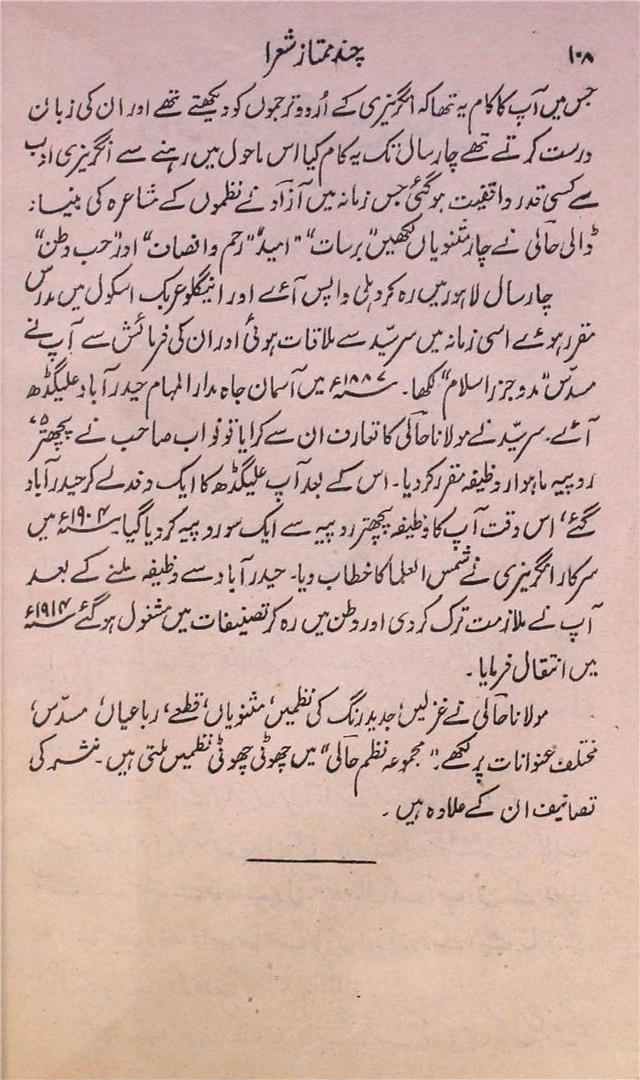 ۱۰۸ چند ممتاز شعرا
جس میں آپ کا کام یہ تھا کہ انگریزی کے اُردو ترجموں کو دیکھتے تھے اور ان کی زبان
درست کرتے تھے چار سال تک یہ کام کیا اس ماحول میں رہنے سے انگریزی ادب
سے کسی قدر واقفیت ہوگئی جس زمانہ میں آزاد نے نظموں کے مشاعرہ کی بنیاد
ڈالی حالی نے چار مثنویاں لکھیں "برسات" "امید" "رحم و انصاف" اور "حب وطن"
چار سال لاہور میں رہ کر دہلی واپس آئے اور اینگلو عربک اسکول میں مدرس
مقرر ہوئے اسی زمانہ میں سرسیّد سے ملاقات ہوئی اور ان کی فرمائش سے آپ نے
مسدس "مدوجزر اسلام" لکھا۔ ۱۸۸۷ء میں آسمان جاہ مدارالمہام حیدرآباد علیگڈھ
آئے۔ سرسیّد نے مولانا حالی کا تعارف ان سے کرایا تو نواب صاحب نے پچھتر ۷۵
روپیہ ماہوار وظیفہ مقرر کر دیا۔ اس کے بعد آپ علیگڈھ کا ایک وفد لے کر حیدرآباد
گئے، اس وقت آپ کا وظیفہ پچھتر روپیہ سے ایک سو روپیہ کر دیا گیا۔ ۱۹۰۴ء میں
سرکار انگریزی نے شمس العلما کا خطاب دیا۔ حیدرآباد سے وظیفہ ملنے کے بعد
آپ نے ملازمت ترک کر دی اور وطن میں رہ کر تصنیفات میں مشغول ہو گئے ۱۹۱۴ء
میں انتقال فرمایا۔
مولانا حالی نے غزلیں، جدید رنگ کی نظمیں، مثنویاں، قطعے، رباعیاں، مسدّس،
مختلف عنوانات پر لکھے۔ "مجموعہ نظم حالی" میں چھوٹی چھوٹی نظمیں ملتی ہیں۔ نثر کی
تصانیف ان کے علاوہ ہیں۔